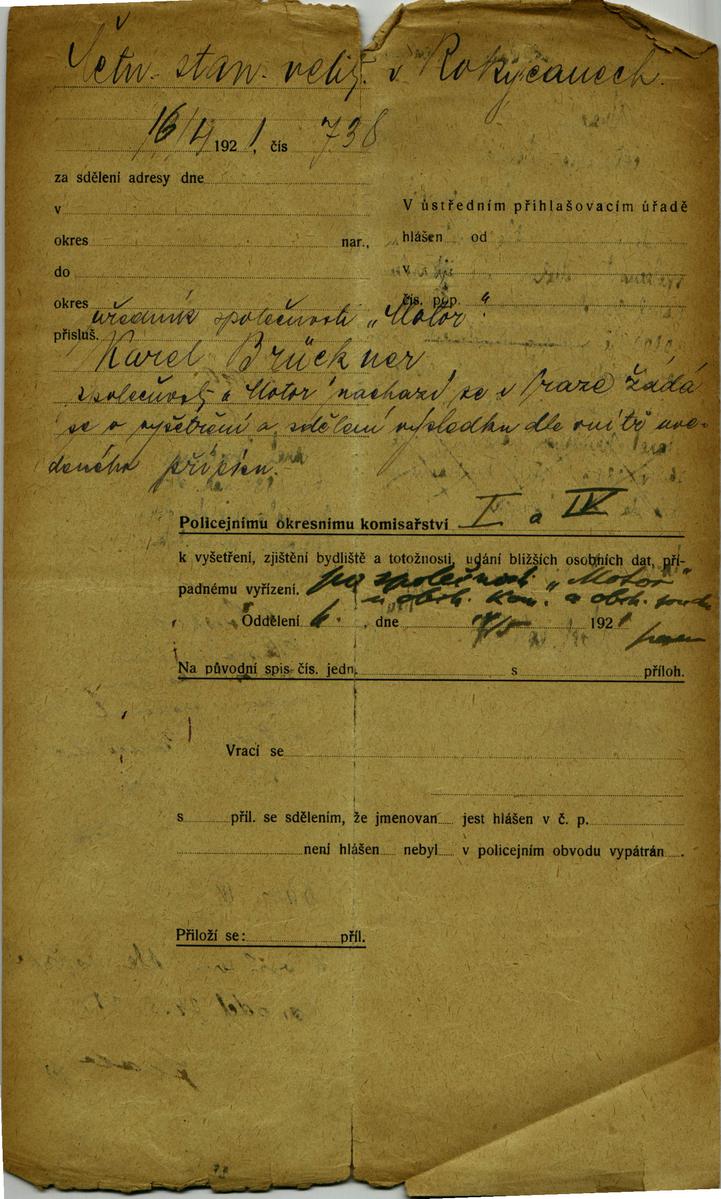 Četn. stan. velit. v Rokycanech.
16/4 1921, čís 738
za sdělení adresy dne
v
V ústředním přihlašovacím úřadě
okres nar.,
hlášen od
do
v
okres
čís. pop.
úředník společnosti „Motor“.
přísluš.
Karel Brückner
společnost „Motor“ nachází se v Praze žádá
se o vyšetření a sdělení výsledku dle vnitř uve-
deného přípisu.
Policejnímu okresnímu komisařství I a IV
k vyšetření, zjištění bydliště a totožnosti, udání bližších osobních dat, pří-
padnému vyřízení. po společnosti „Motor“
u obch. kom. a obch. soudu
Oddělení 6. , dne 1921
Na původní spis čís. jedn. s příloh.
Vrací se
s příl. se sdělením, že jmenovan jest hlášen v č. p.
není hlášen nebyl v policejním obvodu vypátrán .
Přiloží se: příl.